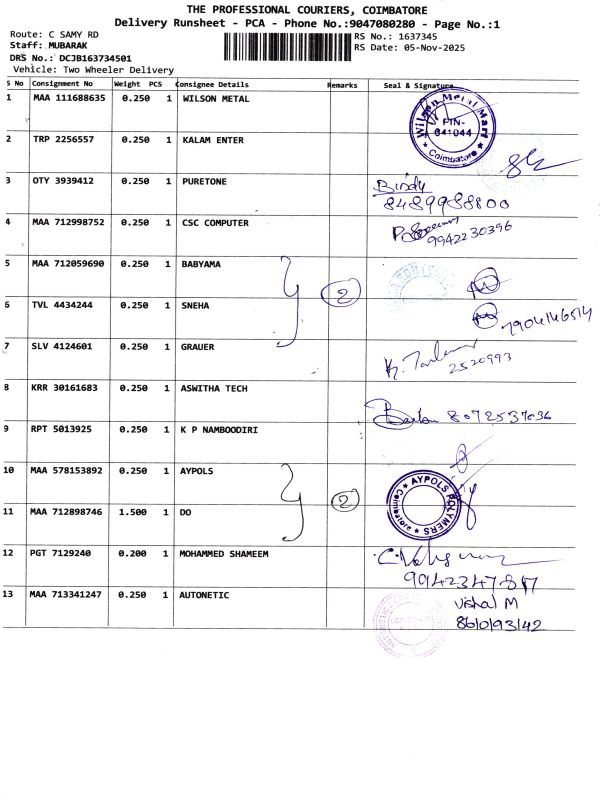 THE PROFESSIONAL COURIERS, COIMBATORE
Delivery Runsheet - PCA - Phone No.:9047080280 - Page No.:1
Route: C SAMY RD RS No.: 1637345
Staff: MUBARAK RS Date: 05-Nov-2025
DRS No.: DCJB163734501
Vehicle: Two Wheeler Delivery
S No Consignment No Weight PCS Consignee Details Remarks Seal & Signature
1 MAA 111688635 0.250 1 WILSON METAL
Wilson Metal Mart PIN- 641044 Coimbatore
2 TRP 2256557 0.250 1 KALAM ENTER
3 OTY 3939412 0.250 1 PURETONE Bindy
8489988800
4 MAA 712998752 0.250 1 CSC COMPUTER
9942230396
5 MAA 712059690 0.250 1 BABYAMA
2
6 TVL 4434244 0.250 1 SNEHA 7904146514
7 SLV 4124601 0.250 1 GRAUER
2520993
8 KRR 30161683 0.250 1 ASWITHA TECH
8072537036
9 RPT 5013925 0.250 1 K P NAMBOODIRI
10 MAA 578153892 0.250 1 AYPOLS
2 AYPOLS POLYMERS Coimbatore
11 MAA 712898746 1.500 1 DO
12 PGT 7129240 0.200 1 MOHAMMED SHAMEEM
9942347817
13 MAA 713341247 0.250 1 AUTONETIC Vishal M
8610193142